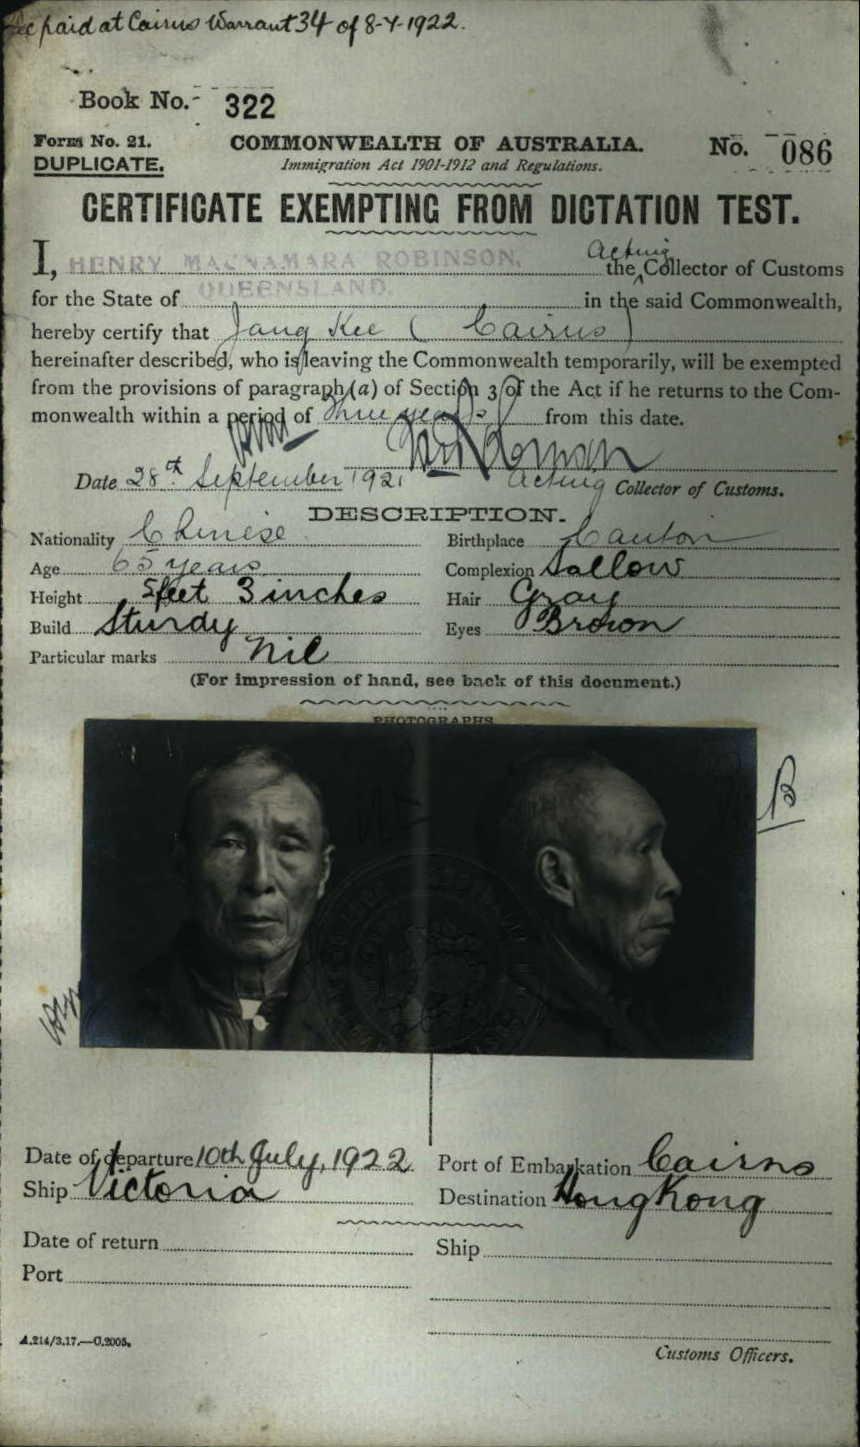 Fee paid at Cairns Warrant 34 of 8-7-1922.
Book No. - 322
Form No. 21. COMMONWEALTH OF AUSTRALIA. No. 086
DUPLICATE. Immigration Act 1901-1912 and Regulations.
CERTIFICATE EXEMPTING FROM DICTATION TEST.
I, HENRY MACNAMARA ROBINSON, the Acting Collector of Customs
for the State of QUEENSLAND. in the said Commonwealth,
hereby certify that Jang Kee (Cairns)
hereinafter described, who is leaving the Commonwealth temporarily, will be exempted
from the provisions of paragraph (a) of Section 3 of the Act if he returns to the Com-
monwealth within a period of three years from this date.
Date 28th September 1921 Acting Collector of Customs.
DESCRIPTION.
Nationality Chinese Birthplace Canton
Age 65 years Complexion Sallow
Height 5 feet 3 inches Hair Gray
Build Sturdy Eyes Brown
Particular marks Nil
(For impression of hand, see back of this document.)
PHOTOGRAPHS
B
Date of departure 10th July, 1922 Port of Embarkation Cairns
Ship Victoria Destination Hong Kong
Date of return Ship
Port
A.214/3.17.—C.2005. Customs Officers.